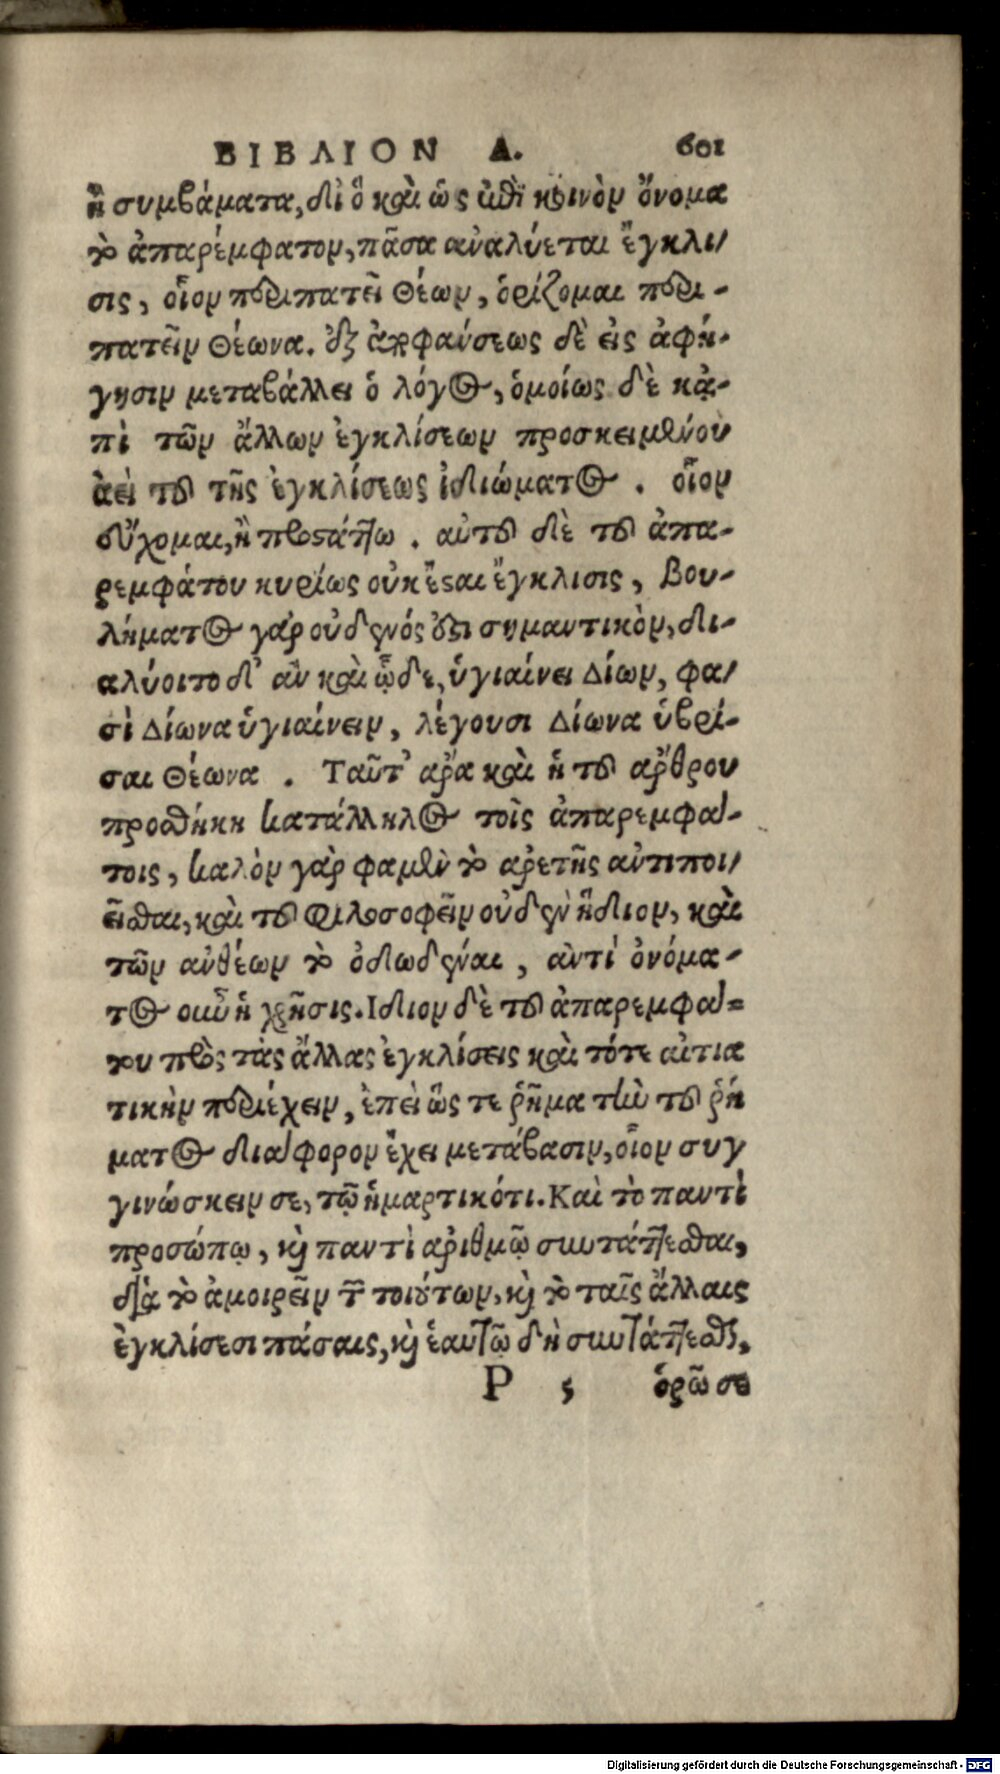 ΒΙΒΛΙΟΝ Δ. 601
ἢ συμβάματα, δι' ὃ καὶ ὡς ἐπὶ κοινὸν ὄνομα
τὸ ἀπαρέμφατον, πᾶσα ἀναλύεται ἔγκλι/
σις, οἷον περιπατεῖ Θέων, ὁρίζομαι περι-
πατεῖν Θέωνα. ἐξ ἀποφάνσεως δὲ εἰς ἀφή-
γησιν μεταβάλλει ὁ λόγος, ὁμοίως δὲ κᾀ-
πὶ τῶν ἄλλων ἐγκλίσεων προσκειμένου
ἀεὶ τοῦ τῆς ἐγκλίσεως ἰδιώματος. οἷον
εὔχομαι, ἢ προστάττω. αὐτοῦ δὲ τοῦ ἀπα-
ρεμφάτου κυρίως οὐκ ἔσται ἔγκλισις, βου-
λήματος γὰρ οὐδενός ἐστι σημαντικὸν, δι-
αλύοιτο δ' ἂν καὶ ὧδε, ὑγιαίνει Δίων, φα/
σὶ Δίωνα ὑγιαίνειν, λέγουσι Δίωνα ὑβρί-
σαι Θέωνα. Ταῦτ' ἄρα καὶ ἡ τοῦ ἄρθρου
προσθήκη κατάλληλος τοῖς ἀπαρεμφά-
τοις, καλὸν γὰρ φαμὲν τὸ ἀρετῆς ἀντιποι/
εῖσθαι, καὶ τοῦ φιλοσοφεῖν οὐδὲν ἥδιον, καὶ
τῶν ἀνθέων τὸ ὀδωδέναι, ἀντὶ ὀνόμα-
τος οὖν ἡ χρῆσις. Ιδιον δὲ τοῦ ἀπαρεμφά-
του πρὸς τὰς ἄλλας ἐγκλίσεις καὶ τότε αἰτια
τικὴν περιέχειν, ἐπεὶ ὥς τε ῥῆμα τὴν τοῦ ῥή
ματος διάφορον ἔχει μετάβασιν, οἷον συγ
γινώσκειν σε, τῷ ἡμαρτικότι. Καὶ τὸ παντὶ
προσώπῳ, καὶ παντὶ ἀριθμῷ συντάττεσθαι,
διὰ τὸ ἀμοιρεῖν τῶν τοιούτων, καὶ τὸ ταῖς ἄλλαις
ἐγκλίσεσι πάσαις, καὶ ἑαυτῷ δὴ συντάττεσθαι,
Ρ 5 ὁρῶ σε
Digitalisierung gefördert durch die Deutsche Forschungsgemeinschaft - DFG